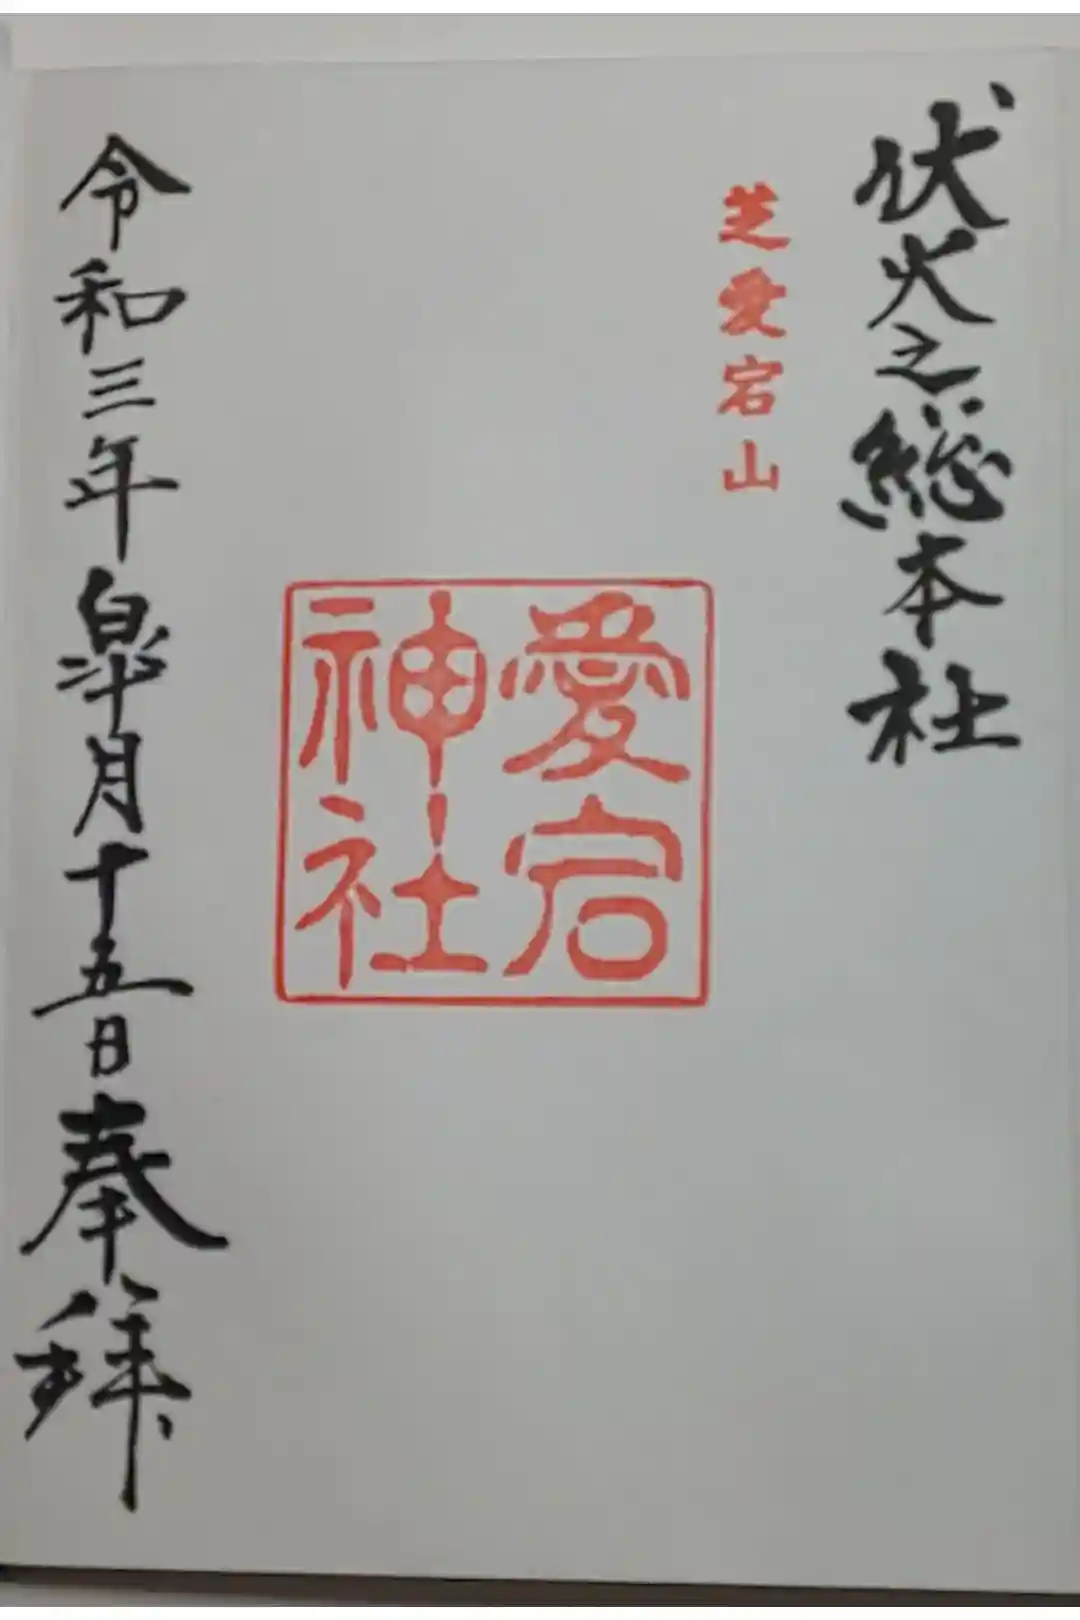 伏火之総本社
芝愛宕山
愛宕
神社
令和三年皐月十五日奉拝